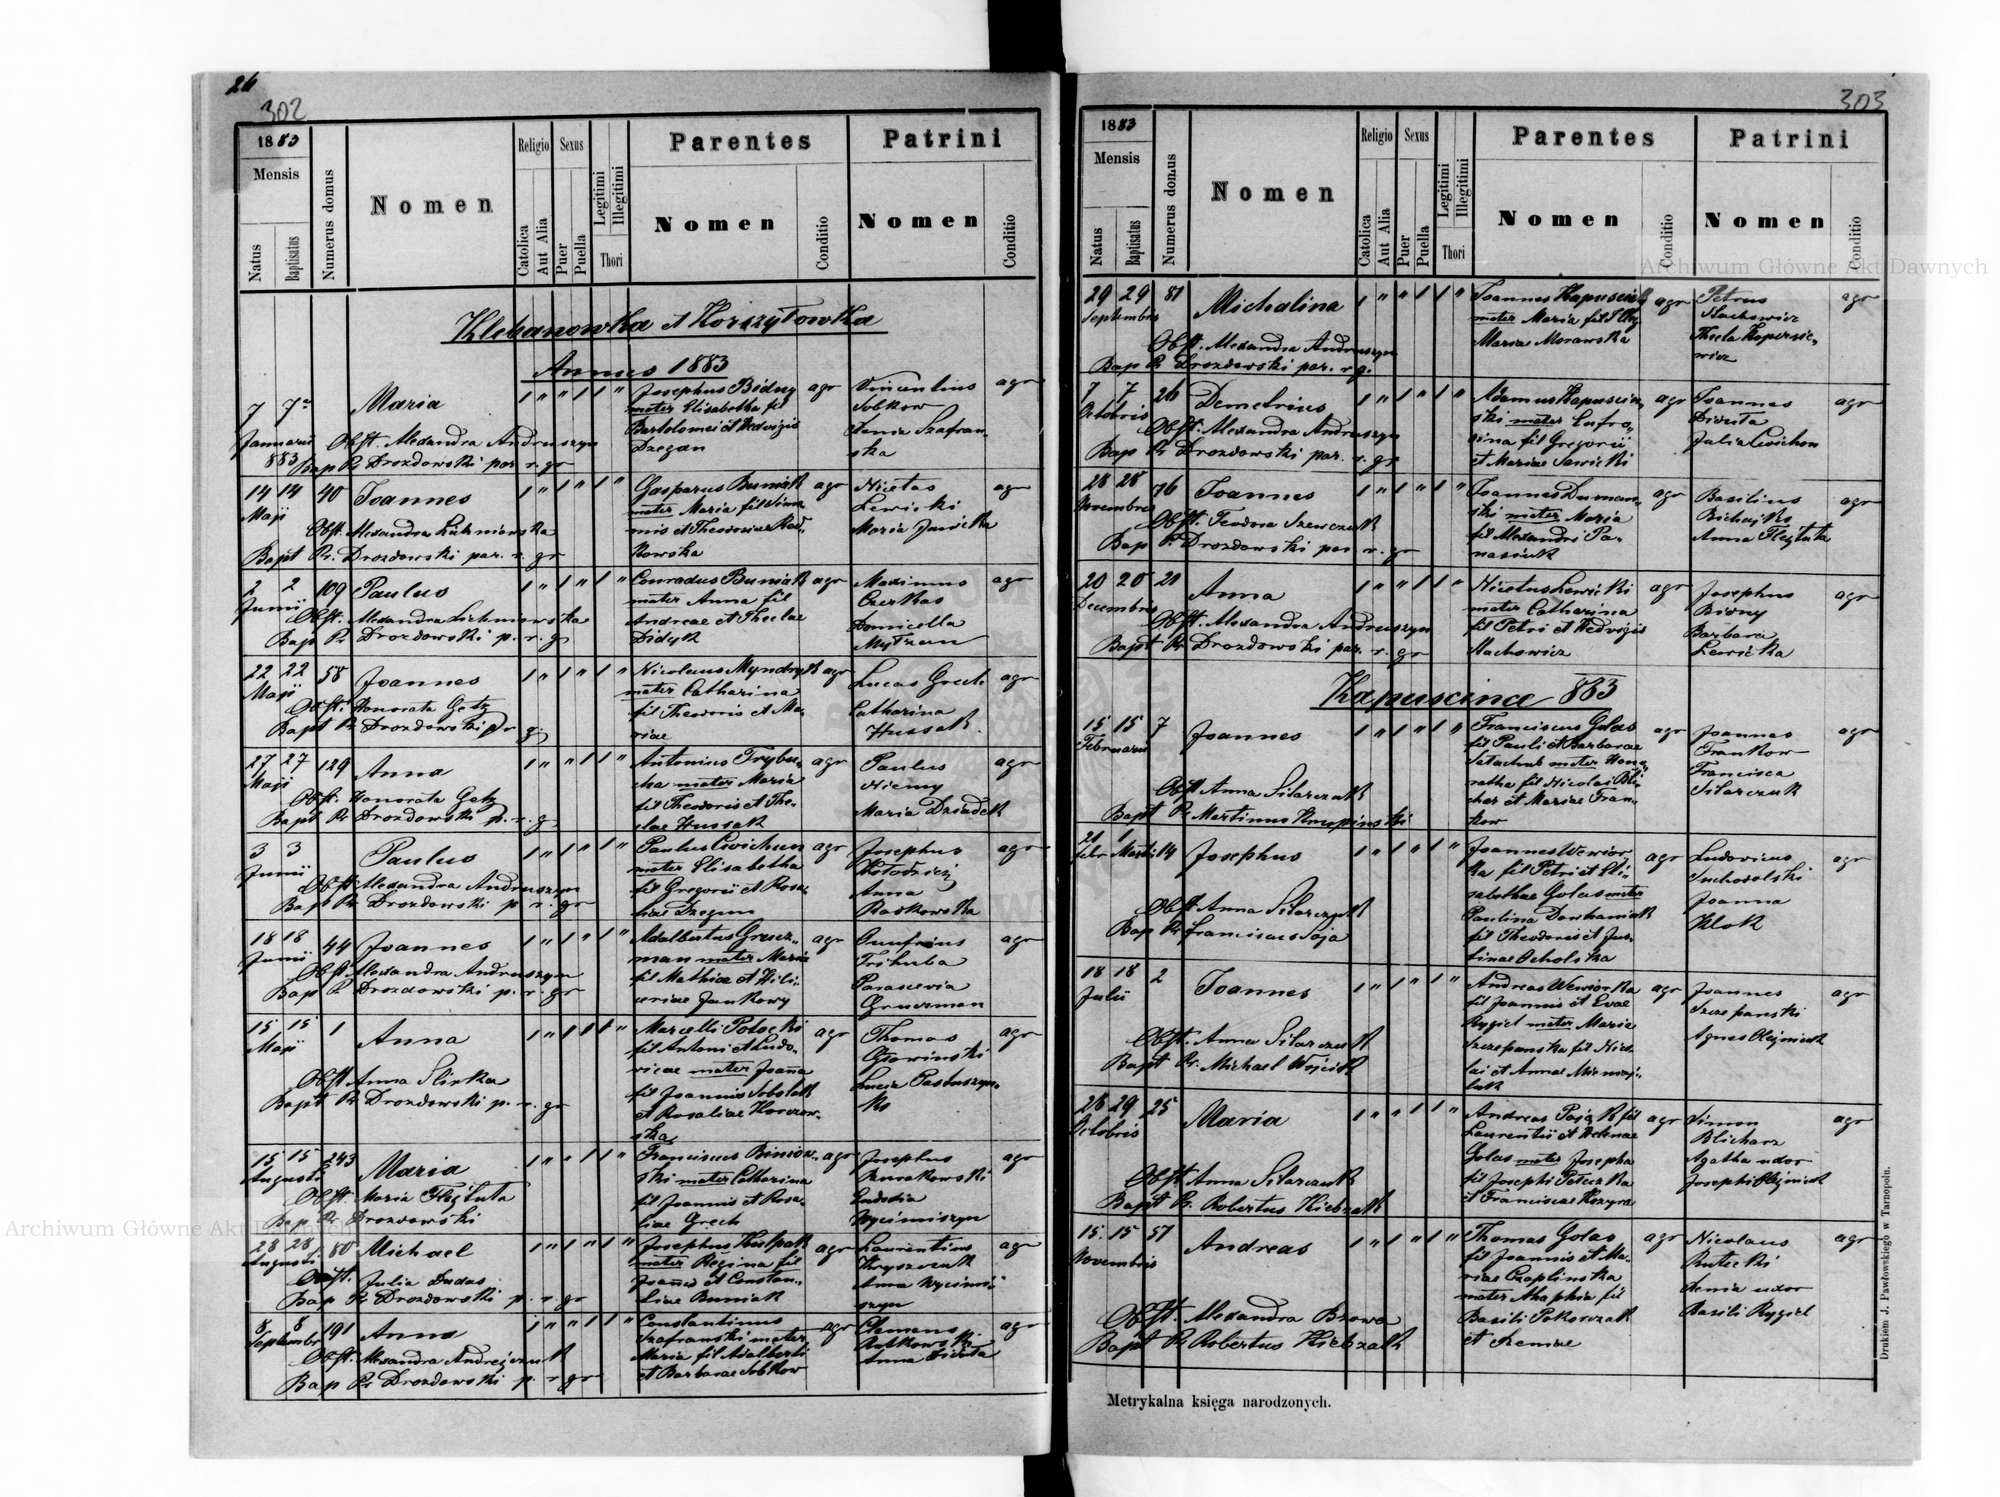 26
302
1883
Mensis
Natus
Baptisatus
Numerus domus
Nomen
Religio
Catolica
Aut Alia
Sexus
Puer
Puella
Legitimi
Illegitimi
Thori
Parentes
Nomen
Conditio
Patrini
Nomen
Conditio
Klebanowka et Korszyłowka
Annus 1883
7 7
Januarii
883
Maria
Obst. Alexandra Andruszyn
Bap Pr Drozdowski par. r. gr
Josephus Bidny
mater Elisabetha fil
Bartolomei et Hedvigis
Dzegan
agr
Vincentius
Sobkow
Xenia Szafran-
ska
agr
14 14 40
Maji
Joannes
Obst. Alexandra
Bapt Pr. Drozdowski par. r. gr
Gasparus Buniak
mater Maria fil
et Theodorae
kowska
agr
Nicetas
Lewicki
Maria
agr
2 2 109
Junii
Paulus
Obst. Alexandra Lichniowska
Bap Pr Drozdowski p. r. g
Conradus Buniak
mater Anna fil
Andreae et Theclae
Didyk
agr
Maximus
Czerkas
Domicella
agr
22 22 58
Maji
Joannes
Obst. Honorata Getz
Bapt Pr Drozdowski
Nicolaus Myndryk
mater Catharina
fil Theodoris et Ma-
riae
agr
Lucas Grech
Catharina
Hussak
agr
27 27 129
Maji
Anna
Obst. Honorata Getz
Bapt Pr Drozdowski p. r. g
Antonius Trybu-
cha mater Maria
fil Theodoris et The-
clae Hussak
agr
Paulus
Niemy
Maria Dziadek
agr
3 3
Junii
Paulus
Obst Alexandra Andruszyn
Bap Pr Drozdowski p. r. gr
Paulus
mater Elisabetha
fil Gregorii et Rosa-
liae
agr
Josephus
Kołodziej
Anna
Raskowska
agr
18 18 44
Junii
Joannes
Obst Alexandra Andruszyn
Bap Pr Drozdowski p. r. gr
Adalbertus Grucz-
man mater Maria
fil Mathiae et
Jankowy
agr
Onufrius
Trihuba
Parascevia
Gruczman
agr
15 15 1
Maji
Anna
Obst Anna Slirka
Bapt Pr Drozdowski p. r. gr
Marcelli Potocki
fil Antoni et Ludo-
vicae mater Joanna
fil Joannis
et Rosaliae
ska
agr
Thomas
Głowinski
Lucia Pastuszyn-
ko
agr
15 15 243
Augusti
Maria
Obst. Maria Flegluta
Bap. Pr Drozdowski
Franciscus Biniow-
ski mater Catharina
fil Joannis et Rosa-
liae Grech
agr
Josephus
Eudoxia
agr
28 28 80
Augusti
Michael
Obst. Julia Dudas
Bap Pr Drozdowski p. r. gr
Josephus Kulpak
mater Regina fil
Joannis et Constan-
tiae Buniak
agr
Laurentius
Kryszczuk
Anna
szyn
agr
8 8 191
Septembr
Anna
Obst. Alexandra Andrejczuk
Bap Pr Drozdowski p. r gr
Constantinus
Szafranski mater
Maria fil Adalberti
et Barbarae Sobkow
agr
Clemens
Rutkowski
Anna Diduta
agr
303
1883
Mensis
Natus
Baptisatus
Numerus domus
Nomen
Religio
Catolica
Aut Alia
Sexus
Puer
Puella
Legitimi
Illegitimi
Thori
Parentes
Nomen
Conditio
Patrini
Nomen
Conditio
29 29 81
Septembris
Michalina
Obst. Alexandra Andruszyn
Bap Pr Drozdowski par. r. gr.
Joannes Kapuscin
mater Maria fil
Mariae Morawska
agr
Petrus
Stachowicz
Thecla
wicz
agr
7 7 26
Octobris
Demetrius
Obst. Alexandra Andruszyn
Bap Pr Drozdowski par. r. gr
Adamus Kapuscin-
ski mater Eufro-
sina fil Gregorii
et Mariae Sawicki
agr
Joannes
Diduta
Julia
agr
28 28 76
Novembris
Joannes
Obst. Teodora Szewczuk
Bap P. Drozdowski par r. gr
Joannes Duman-
ski mater Maria
fil Alexandri Pa-
nasiuk
agr
Basilius
Bichajko
Anna Flegluta
agr
20 20 20
Decembris
Anna
Obst. Alexandra Andruszyn
Bapt Pr Drozdowski par. r. gr
Nicetus Lewicki
mater Catharina
fil Petri et Hedvigis
Stachowicz
agr
Josephus
Bidny
Barbara
Lewicka
agr
Kapuscince 883
15 15 7
Februarii
Joannes
Obst Anna Silarczuk
Bapt Pr Martinus
Franciscus Golas
fil Pauli et Barbarae
mater Hono-
ratha fil Nicolai Bli-
char et Mariae Fran-
kow
agr
Joannes
Frankow
Francisca
Silarczuk
agr
21 1 14
Febr Martii
Josephus
Obst Anna Silarczuk
Bap Pr Franciscus Soja
Joannes Wewior-
ka fil Petri et Eli-
sabethae Golas mater
Paulina Dowhaniuk
fil Theodoris et Jus-
tinae Ocholska
agr
Ludovicus
Suchodolski
Joanna
Klok
agr
18 18 2
Julii
Joannes
Obst. Anna Silarczuk
Bapt Pr. Michael Wojcik
Andreas Wewiorka
fil Joannis et Evae
Rygiel mater Maria
Szczepanska fil Nico-
lai et Annae
luk
agr
Joannes
Szczepanski
Agnes Olejniczk
agr
28 29 25
Octobris
Maria
Obst Anna Silarczuk
Bapt Pr. Robertus Kiebzak
Andreas Pająk fil
Laurentii et Helenae
Golas mater Josepha
fil Josephi Peteczka
et Franciscae Kozyra
agr
Simon
Blicharz
Agatha uxor
Josephi Olejniczk
agr
15. 15 51
Novembris
Andreas
Obst. Alexandra Bzowa
Bapt Pr Robertus Kiebzak
Thomas Golas
fil Joannis et Ma-
riae Czaplinska
mater Ahaphia fil
Basili Pokorczak
et Xeniae
agr
Nicolaus
Rutecki
Xenia uxor
Basili Rygiel
agr
Metrykalna księga narodzonych.
Drukiem J. Pawłowskiego w Tarnopolu.
Archiwum Główne Akt Dawnych
Archiwum Główne Akt Dawnych